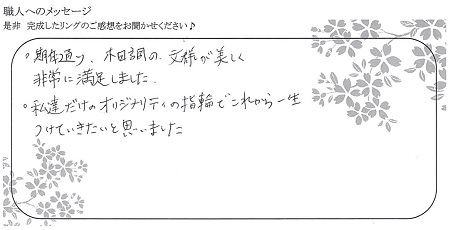 職人へのメッセージ
是非 完成したリングのご感想をお聞かせください♪
・期待通り、木目調の、文様が美しく
非常に満足しました。
・私達だけのオリジナリティの指輪でこれから一生
つけていきたいと思いました